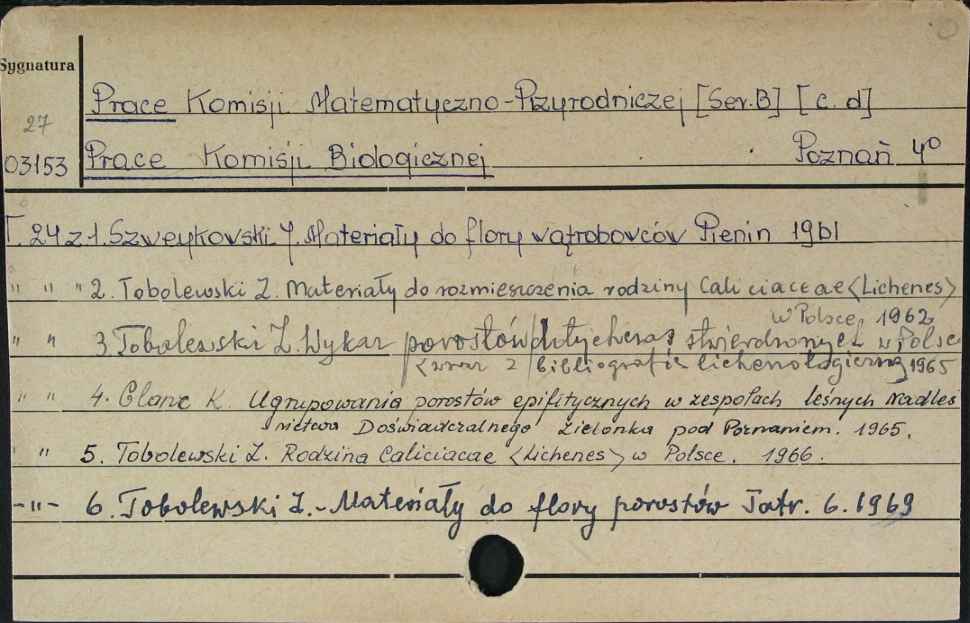 Sygnatura
Prace Komisji Matematyczno-Przyrodniczej [Ser.B] [c. d]
27
03153 Prace Komisji Biologicznej Poznań 4°
T. 24 z 1. Szweykovski J. Materiały do flory wątrobowców Pienin 1961
" " " 2. Tobolewski Z. Materiały do rozmieszczenia rodziny Caliciaceae <Lichenes>
w Polsce 1962
" " 3 Tobolewski Z. Wykaz porostów dotychczas stwierdzonych w Polsce
<wraz z bibliografią lichenologiczną 1965
" " 4. Glanc K. Ugrupowania porostów epifitycznych w zespołach leśnych Nadleś
nictwa Doświadczalnego Zielonka pod Poznaniem. 1965.
" 5. Tobolewski Z. Rodzina Caliciacae <Lichenes> w Polsce. 1966.
-"- 6. Tobolewski Z.- Materiały do flory porostów Tatr. 6. 1969